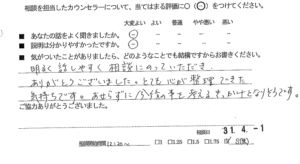 相談を担当したカウンセラーについて、当てはまる評価に○(⊖)をつけてください。
大変よい よい 普通 やや悪い 悪い
■ あなたの話をよく聞きましたか。
■ 説明は分かりやすかったですか。
■ 気がついたことがありましたら、どのようなことでも結構ですからお書きください。
明るく話しやすく相談にのっていただき
ありがとうございました。とても心が整理できた
気持ちです。あせらずに今後の事を考えるきっかけとなりそうです。
ご協力ありがとうございました。
31.4.-1